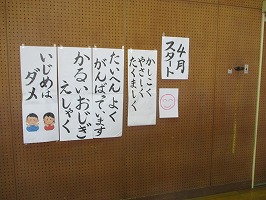 4月
スタート
かしこく
やさしく
たくましく
たいへん よく
がんばっています
かるいおじぎ
えしゃく
いじめは
ダメ